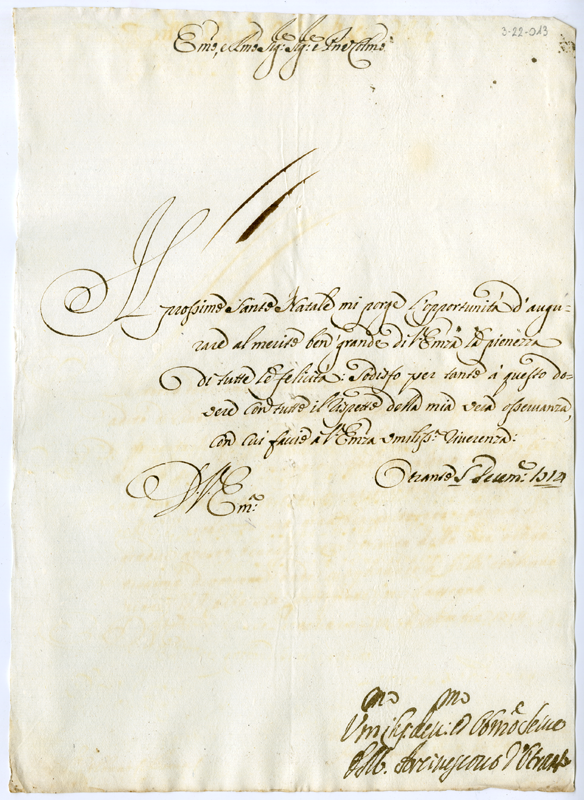 3-22-013
Emo, e Rmo Sig: Sig: e Pne Colmo
Il
prossimo Santo Natale mi porge l'opportunità d'augu-
rare al merito ben grande di V. Emza la pienezza
di tutte le felicità: Sodisfo per tanto à questo do-
vere con tutto il rispetto della mia vera osservanza,
con cui faccio à V. Emza umiliss: riverenza:
Otranto 5 Decem:
D. V. Em:
Umilis. Obmo
Arcivescovo d'Otranto